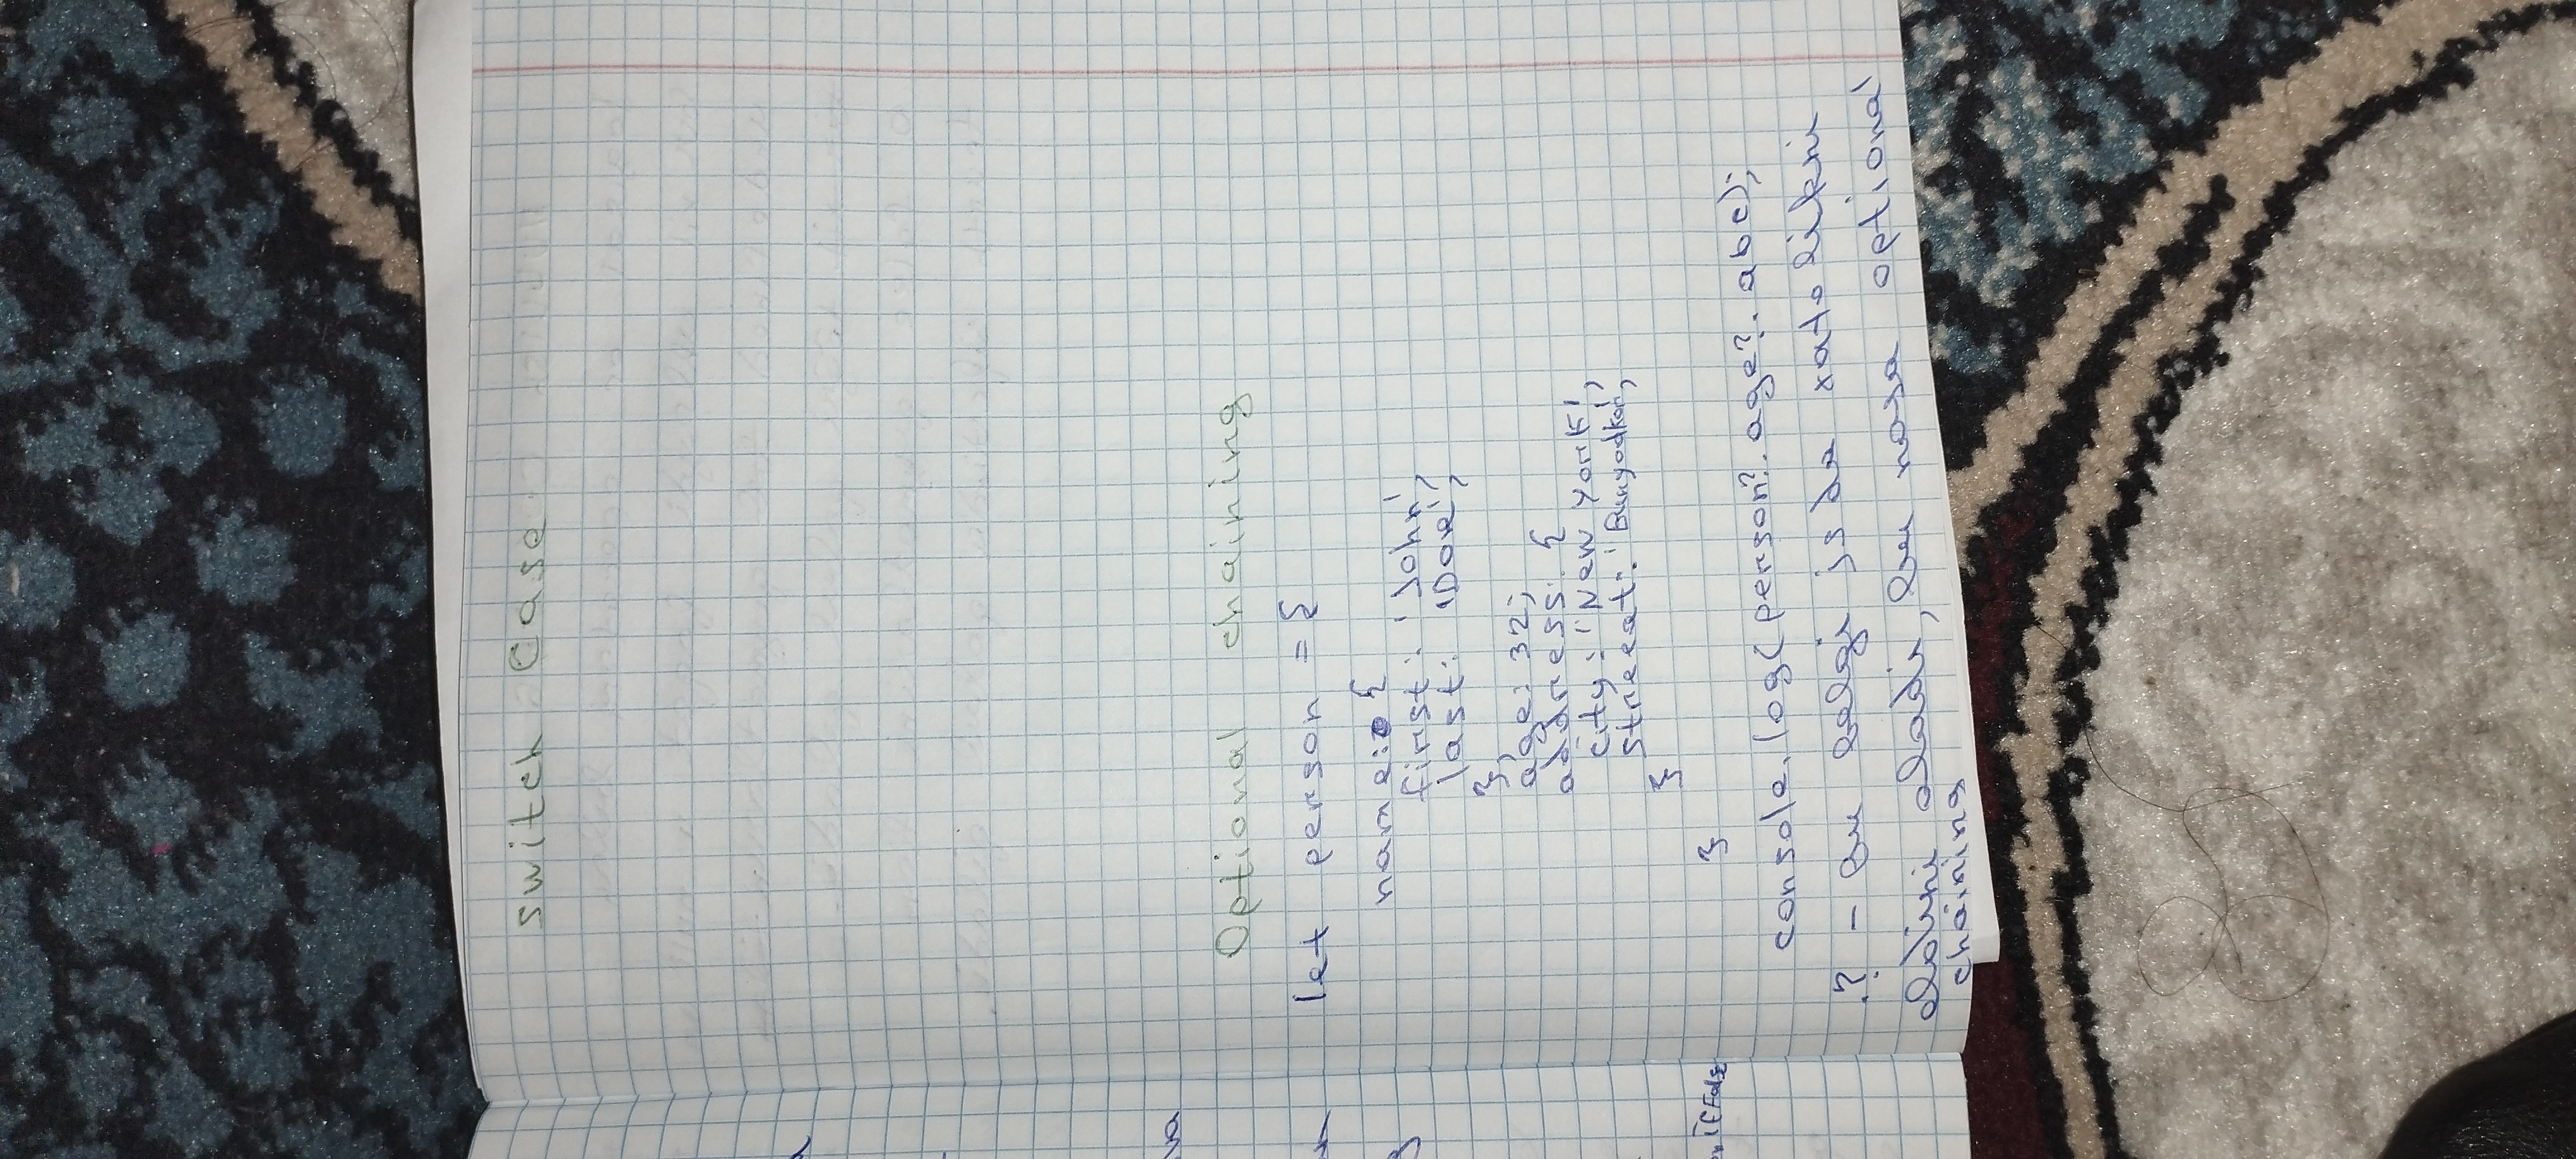 switch Case
Optional chaining
let person = {
name: {
first: 'John',
last: 'Doe',
},
age: 32,
address: {
city: 'New York',
street: 'Bunyodkor',
}
}
console.log(person?.age?.abc);
?. - bu belgi js da xato
oldini oladi, bu nosa optional
chaining